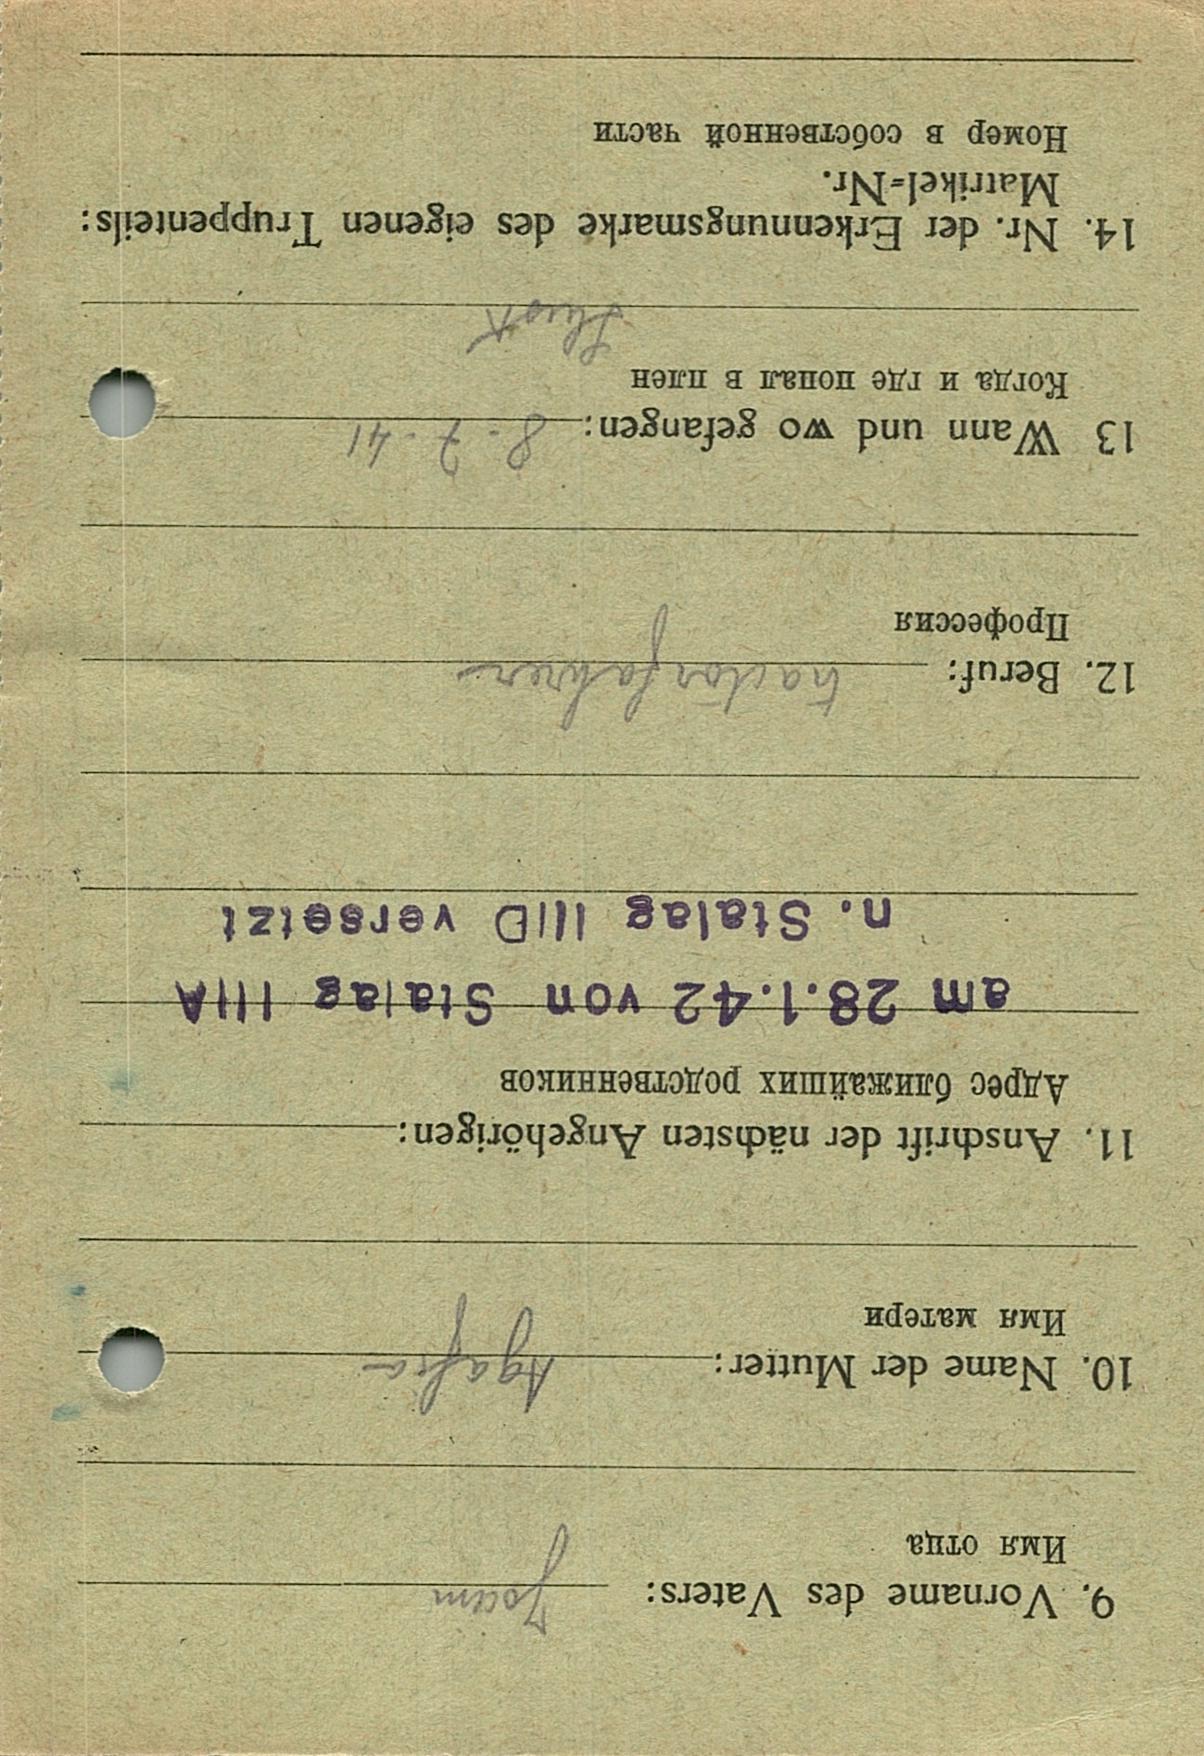 9. Vorname des Vaters:
Имя отца
10. Name der Mutter: Agafia
Имя матери
11. Anschrift der nächsten Angehörigen:
Адрес ближайших родственников
am 28.1.42 von Stalag IIIA
n. Stalag IIID versetzt
12. Beruf: tractorfahrer
Профессия
13 Wann und wo gefangen: 8.7.41
Когда и где попал в плен
14. Nr. der Erkennungsmarke des eigenen Truppenteils:
Matrikel=Nr.
Номер в собственной части